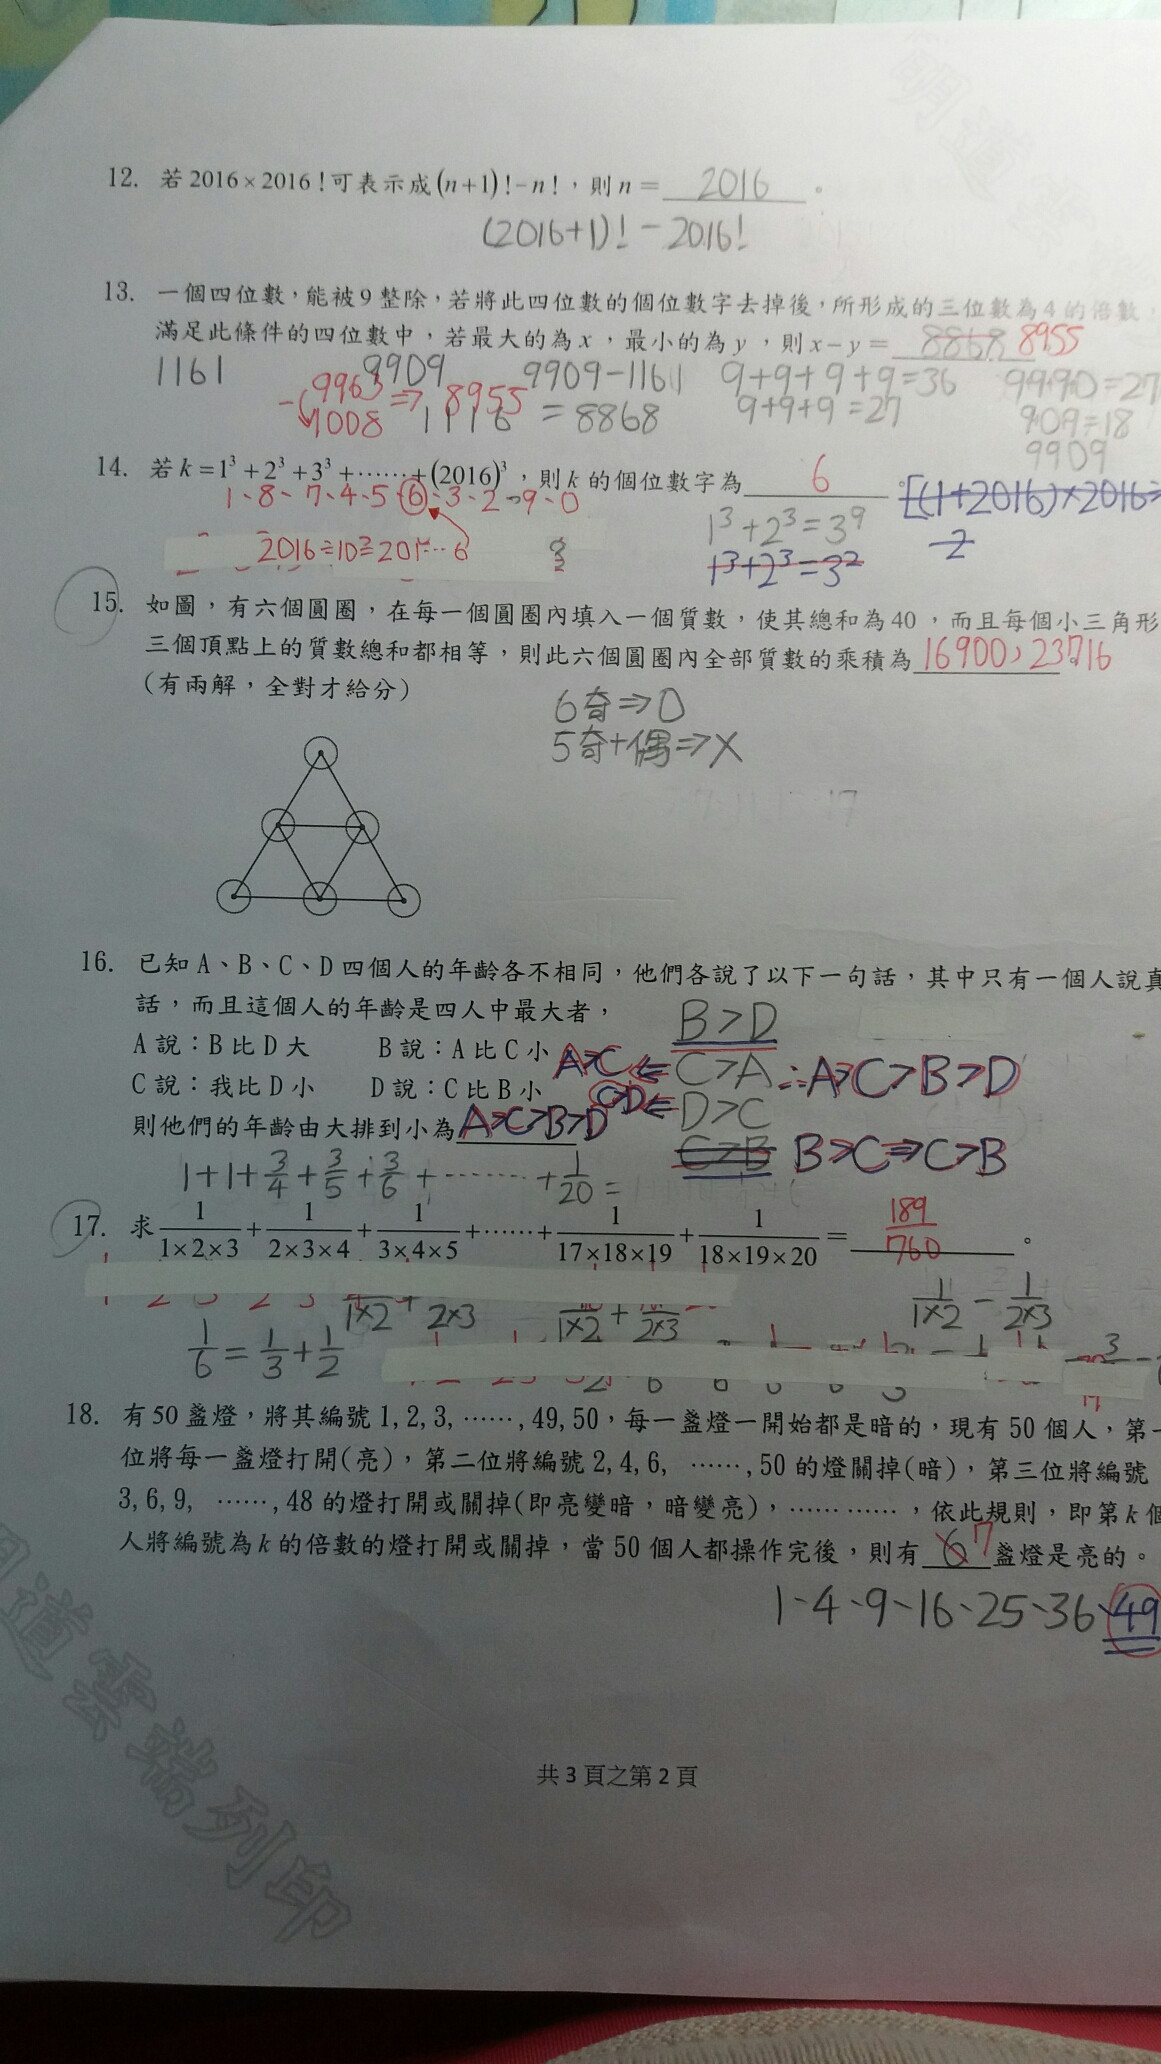 12. 若2016×2016!可表示成(n+1)!-n!,則n= 2016 。
(2016+1)!-2016!
13. 一個四位數,能被9整除,若將此四位數的個位數字去掉後,所形成的三位數為4的倍數,
滿足此條件的四位數中,若最大的為x,最小的為y,則x-y= 8868 8955
1161 9909 9909-1161 9+9+9+9=36
9963 ⇒ 8955 1116 =8868 9+9+9=27 909=18
-1008 9909
14. 若k=1³+2³+3³+……+(2016)³,則k的個位數字為 6 。
1、8、7、4、5、6、3、2、9、0 [(1+2016)×2016÷
2016÷10=201…6 1³+2³=3⁹ 2
1³+2³=3²
15. 如圖,有六個圓圈,在每一個圓圈內填入一個質數,使其總和為40,而且每個小三角形
三個頂點上的質數總和都相等,則此六個圓圈內全部質數的乘積為 16900、23716
(有兩解,全對才給分)
6奇⇒O
5奇+偶⇒X
16. 已知A、B、C、D四個人的年齡各不相同,他們各說了以下一句話,其中只有一個人說真
話,而且這個人的年齡是四人中最大者,
B>D
A說:B比D大 B說:A比C小 A>C ⇐ C>A ∴A>C>B>D
C說:我比D小 D說:C比B小 C>D ⇐ D>C
則他們的年齡由大排到小為 A>C>B>D
C>B B>C⇒C>B
1+1+3/4+3/5+3/6+……+1/20=
17. 求1/(1×2×3)+1/(2×3×4)+1/(3×4×5)+……+1/(17×18×19)+1/(18×19×20)= 189/760 。
1/(1×2) + 1/(2×3) 1/(1×2) + 1/(2×3) 1/(1×2) - 1/(2×3)
1/6=1/3+1/2
18. 有50盞燈,將其編號1,2,3,……,49,50,每一盞燈一開始都是暗的,現有50個人,第一
位將每一盞燈打開(亮),第二位將編號2,4,6, ……,50的燈關掉(暗),第三位將編號
3,6,9, ……,48的燈打開或關掉(即亮變暗,暗變亮),…………,依此規則,即第k個
人將編號為k的倍數的燈打開或關掉,當50個人都操作完後,則有 6 7 盞燈是亮的。
1、4、9、16、25、36、49
共3頁之第2頁
明道雲端列印